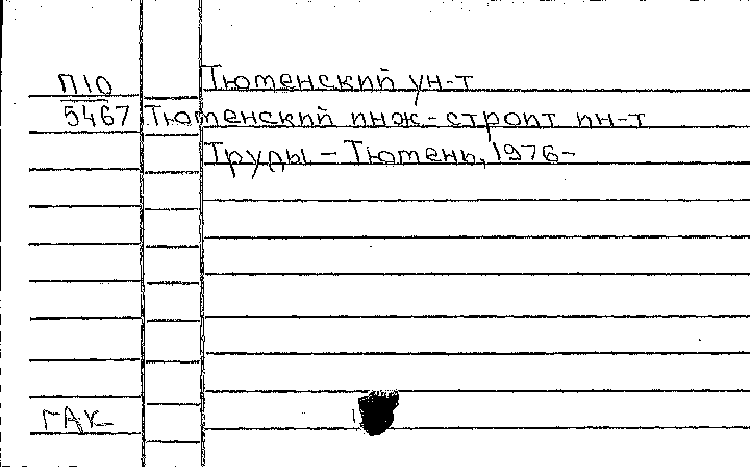 П10 Тюменский ун-т
5467 Тюменский инж-строит ин-т
Труды – Тюмень, 1976–
ГАК